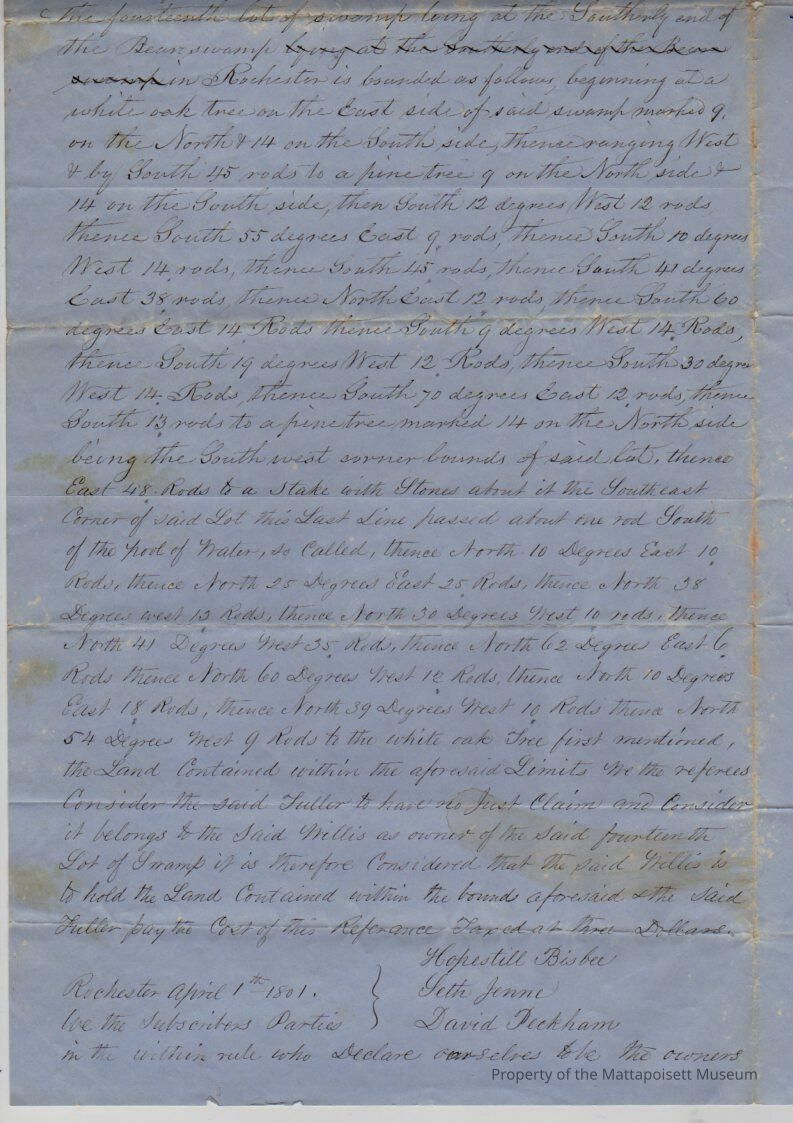 the fourteenth lot of swamp lying at the Southerly end of
the Bear swamp lying at the Southerly end of the Bear
swamp in Rochester is bounded as follows, beginning at a
white oak tree on the East side of said swamp marked 9,
on the North & 14 on the South side, thence ranging West
& by South 45 rods to a pine tree 9 on the North side &
14 on the South side, then South 12 degrees West 12 rods,
thence South 55 degrees East 9 rods, thence South 10 degrees
West 14 rods, thence South 45 rods, thence South 41 degrees
East 38 rods, thence North East 12 rods, thence South 60
degrees East 14 Rods thence South 9 degrees West 14 Rods,
thence South 19 degrees West 12 Rods, thence South 30 degrees
West 14 Rods, thence South 70 degrees East 12 rods, thence
South 13 rods to a pine tree marked 14 on the North side
being the South west corner bounds of said lot, thence
East 48 Rods to a Stake with Stones about it the Southeast
Corner of said Lot this Last Line passed about one rod South
of the pool of Water, so Called, thence North 10 Degrees East 10
Rods, thence North 25 Degrees East 25 Rods, thence North 38
Degrees west 13 Rods, thence North 30 Degrees West 10 rods, thence
North 41 Degrees West 35 Rods, thence North 62 Degrees East 6
Rods thence North 60 Degrees West 12 Rods, thence North 10 Degrees
East 18 Rods, thence North 39 Degrees West 10 Rods thence North
54 Degrees West 9 Rods to the white oak Tree first mentioned,
the Land Contained within the aforesaid Limits We the referees
Consider the said Fuller to have no Just Claim and Consider
it belongs to the Said Willis as owner of the Said fourteenth
Lot of Swamp it is therefore Considered that the said Willis is
to hold the Land Contained within the bounds aforesaid & the said
Fuller pay the Cost of this Referance Taxed at three Dollars.
Hopestill Bisbee
Rochester April 1th 1801. } Seth Jenne
We the Subscribers Parties David Peckham
in the within rule who Declare ourselves to be the owners
Property of the Mattapoisett Museum